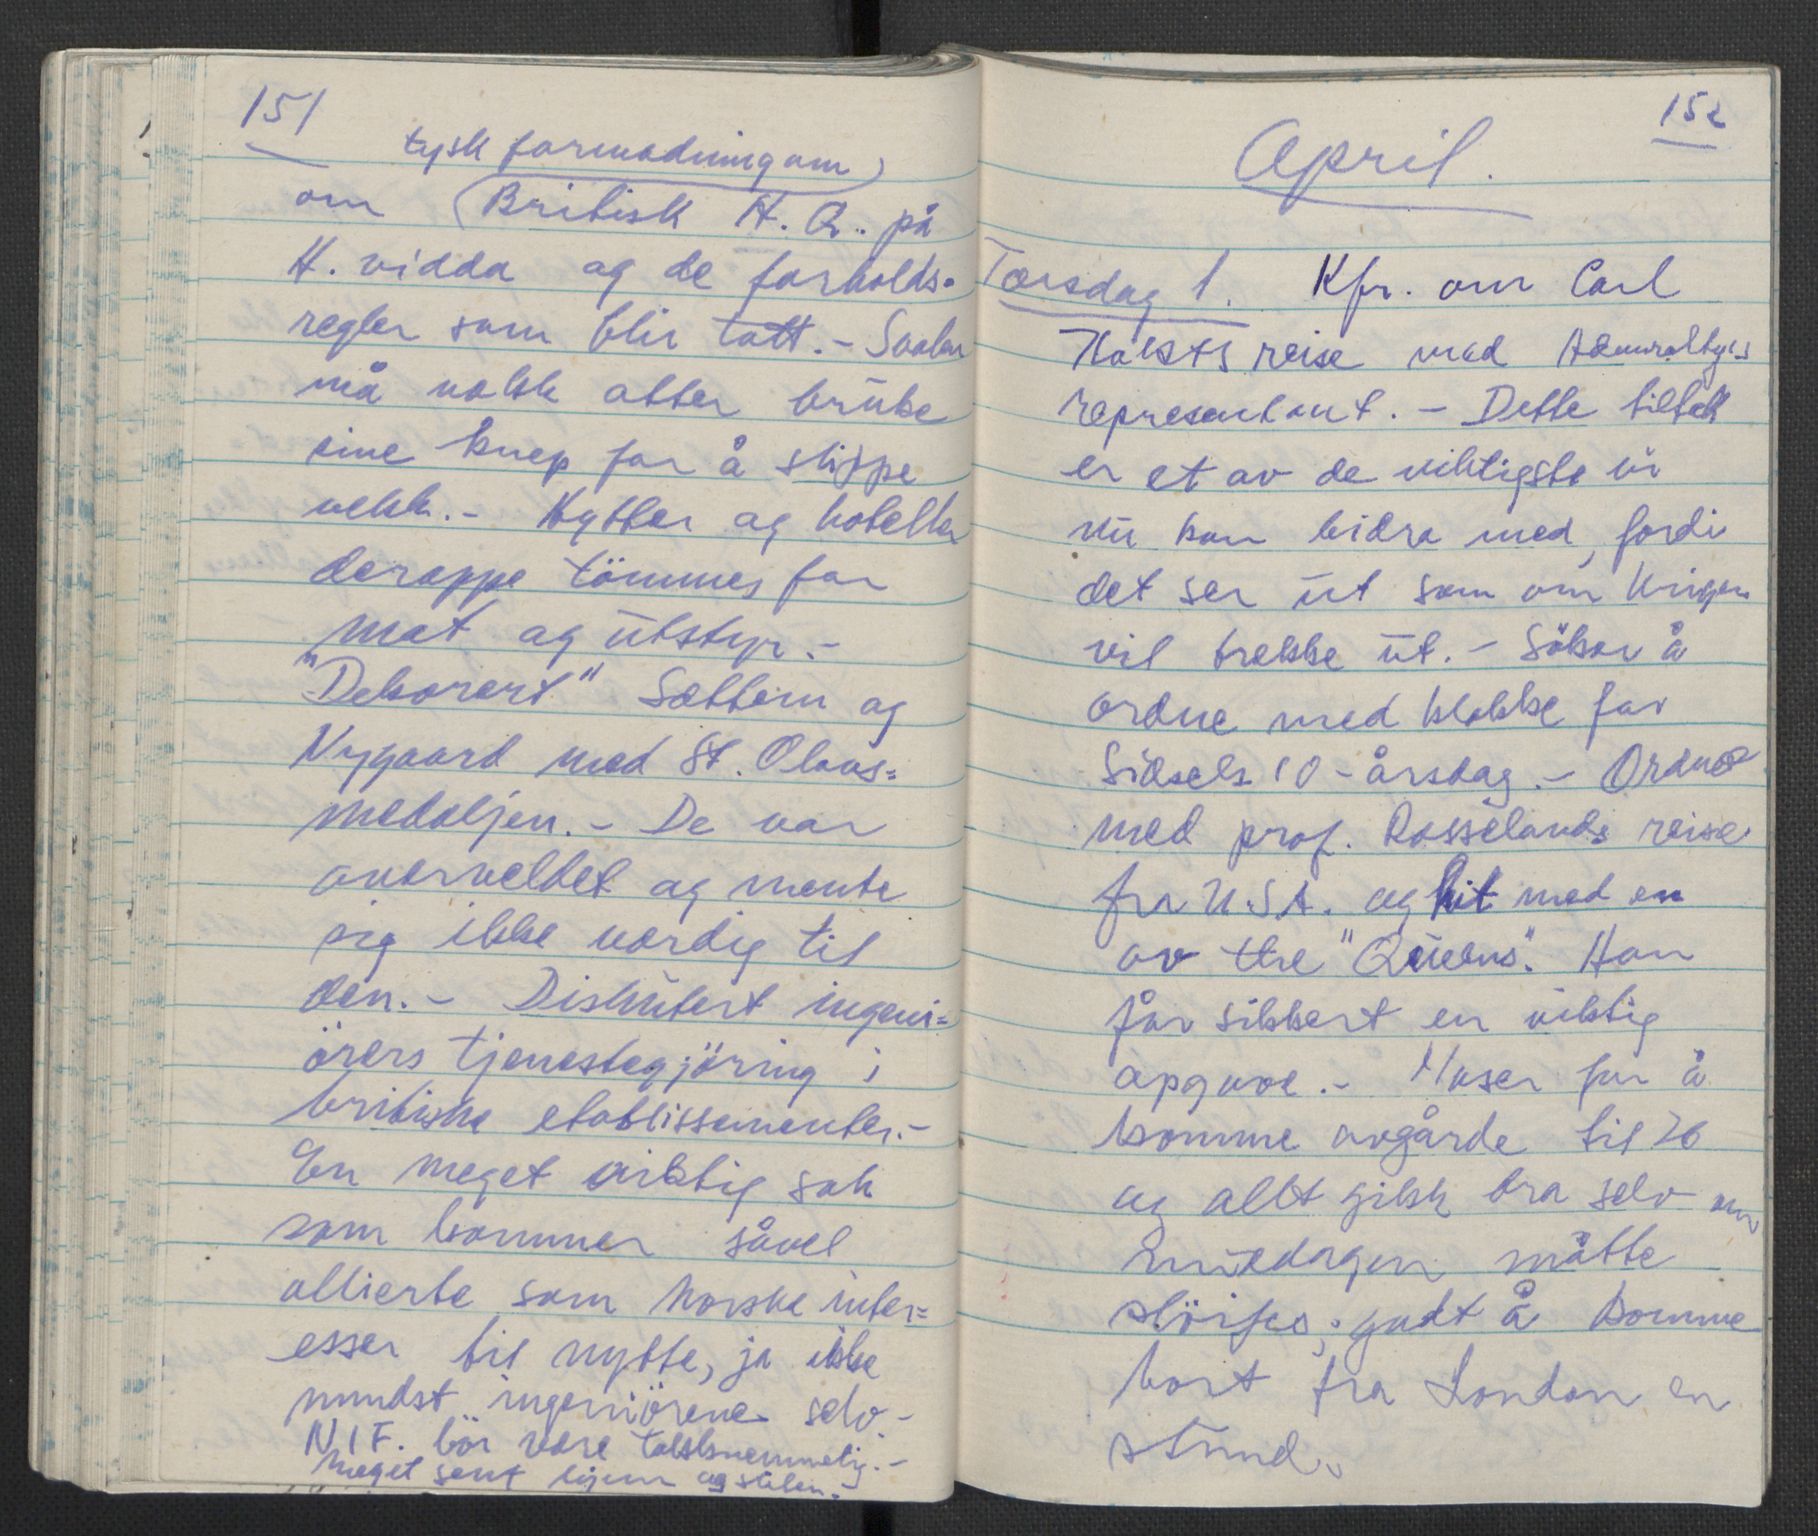 151
tysk formodning om
om British H.Q. på
H. vidda og de forholds-
regler som blir tatt. -
må nokk atter bruke
sine knep for å slippe
vekk. - Hytter og hoteller
deroppe tömmes for
mat og utstyr. -
"Dekorert" Sættem og
Nygaard med St. Olavs=
medaljen. - De var
overveldet og mente
sig ikke verdig til
den. - Diskutert ingeni=
örers tjenestegjöring i
britiske etablissementer. -
En meget viktig sak
som kommer såvel
allierte som norske inter=
esser til nytte, ja ikke
mindst ingeniörene selv. -
NIF. bör være takknemmelig. -
Meget sent hjem og sliten. -
152
April.
Torsdag 1. Kfr. om Carl
Holsts reise med Admiraltyets
representant. - Dette tiltak
er et av de viktigste vi
nu kan bidra med, fordi
det ser ut som om krigen
vil trekke ut. - Söker å
ordne med klokke for
Sidsels 10-årsdag. - Ordne
med prof. Rosselands reise
fra U.S.A. og hit med en
av the "Queens". Han
får sikkert en viktig
opgave. - Maser for å
komme avgårde til 26
og allt gikk bra selv om
middagen måtte
slöifes; godt å komme
bort fra London en
stund.